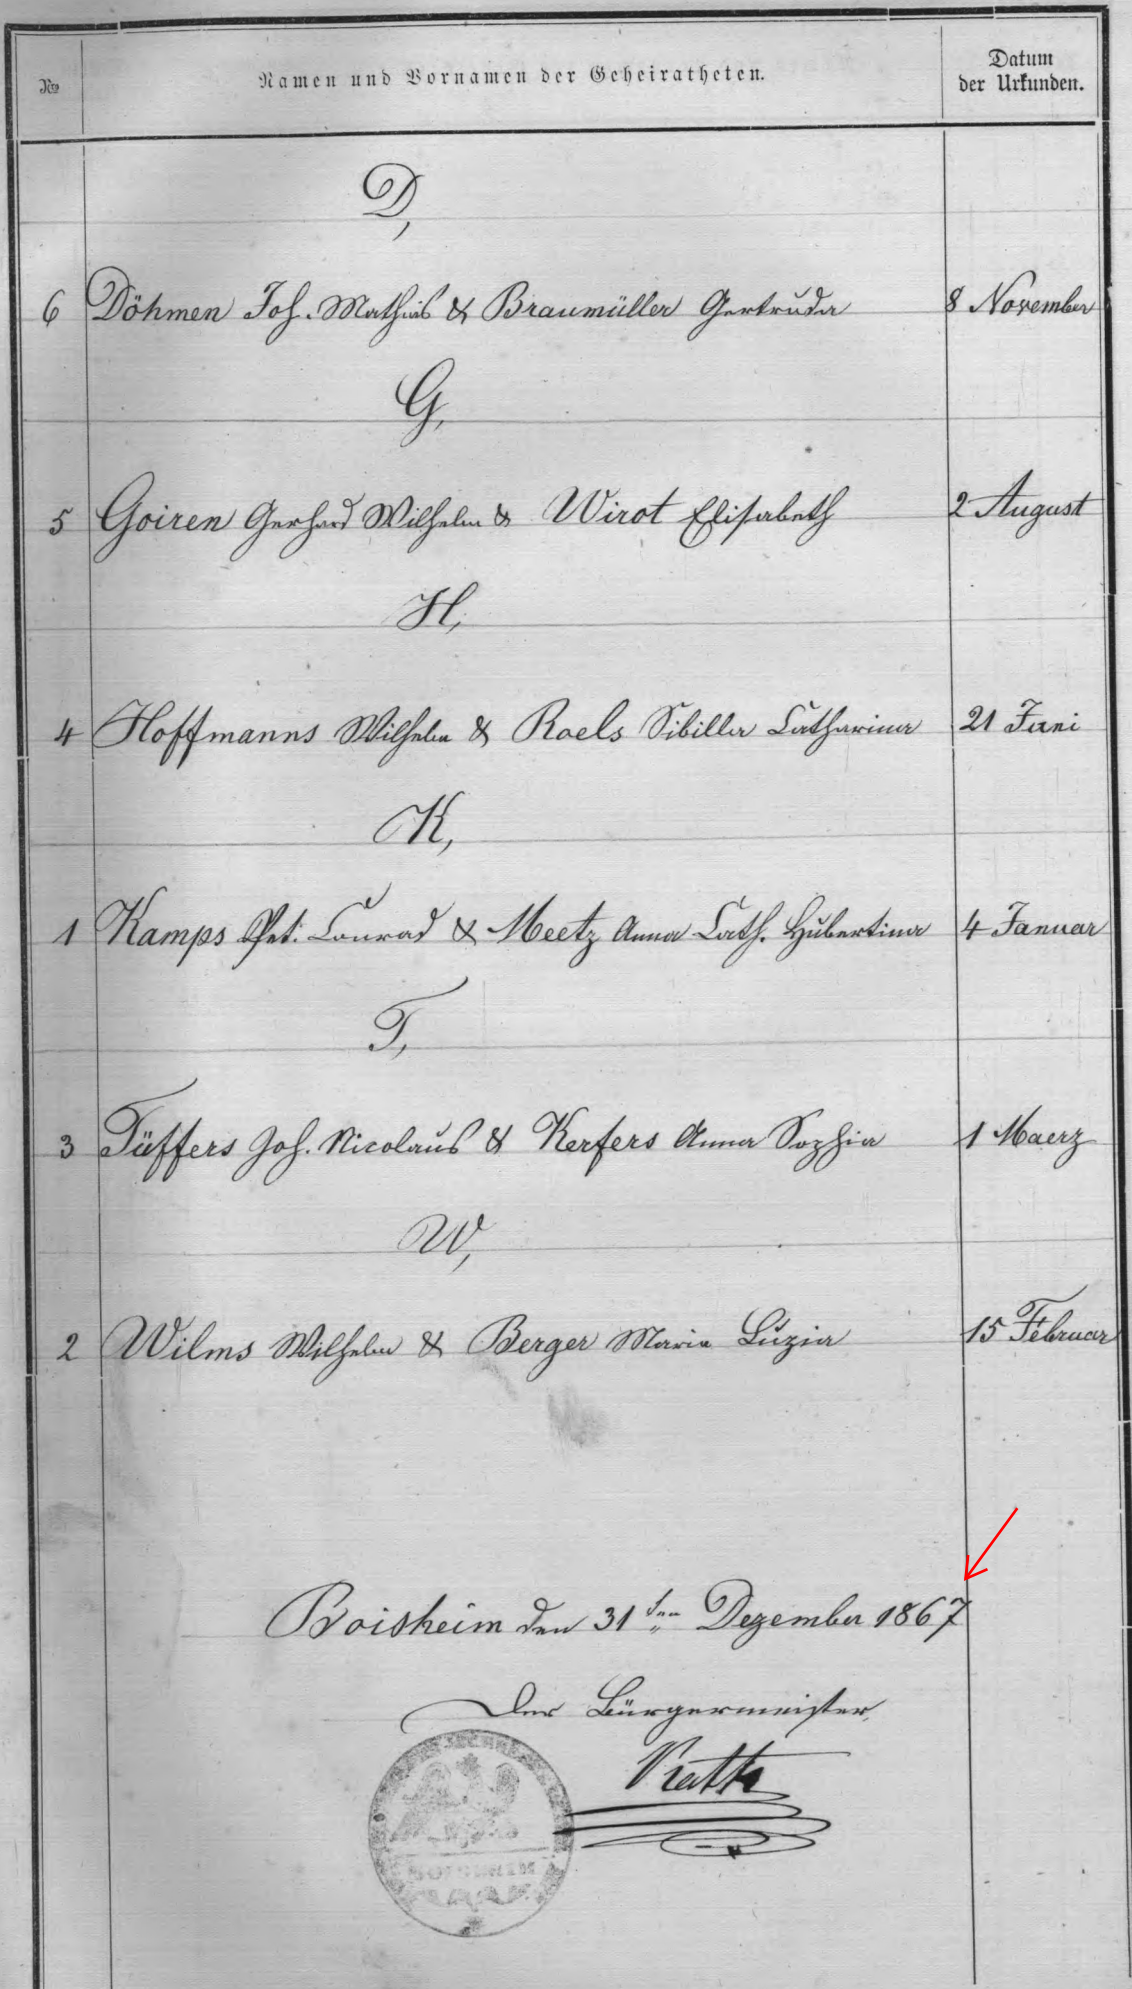 No
Namen und Vornamen der Geheiratheten.
Datum
der Urkunden.
D,
6 Döhmen Joh. Mathias & Braumüller Gertruda 8 November
G,
5 Goiren Gerhard Wilhelm & Wirot Elisabeth 2 August
H,
4 Hoffmanns Wilhelm & Roels Sibilla Catharina 21 Juni
K,
1 Kamps Pet. Conrad & Meetz Anna Cath. Hubertina 4 Januar
T,
3 Tüffers Joh. Nicolaus & Kerfers Anna Sophia 1 Maerz
W,
2 Wilms Wilhelm & Berger Maria Luzia 15 Februar
Boisheim den 31ten Dezember 1867
Der Bürgermeister,
BOISHEIM